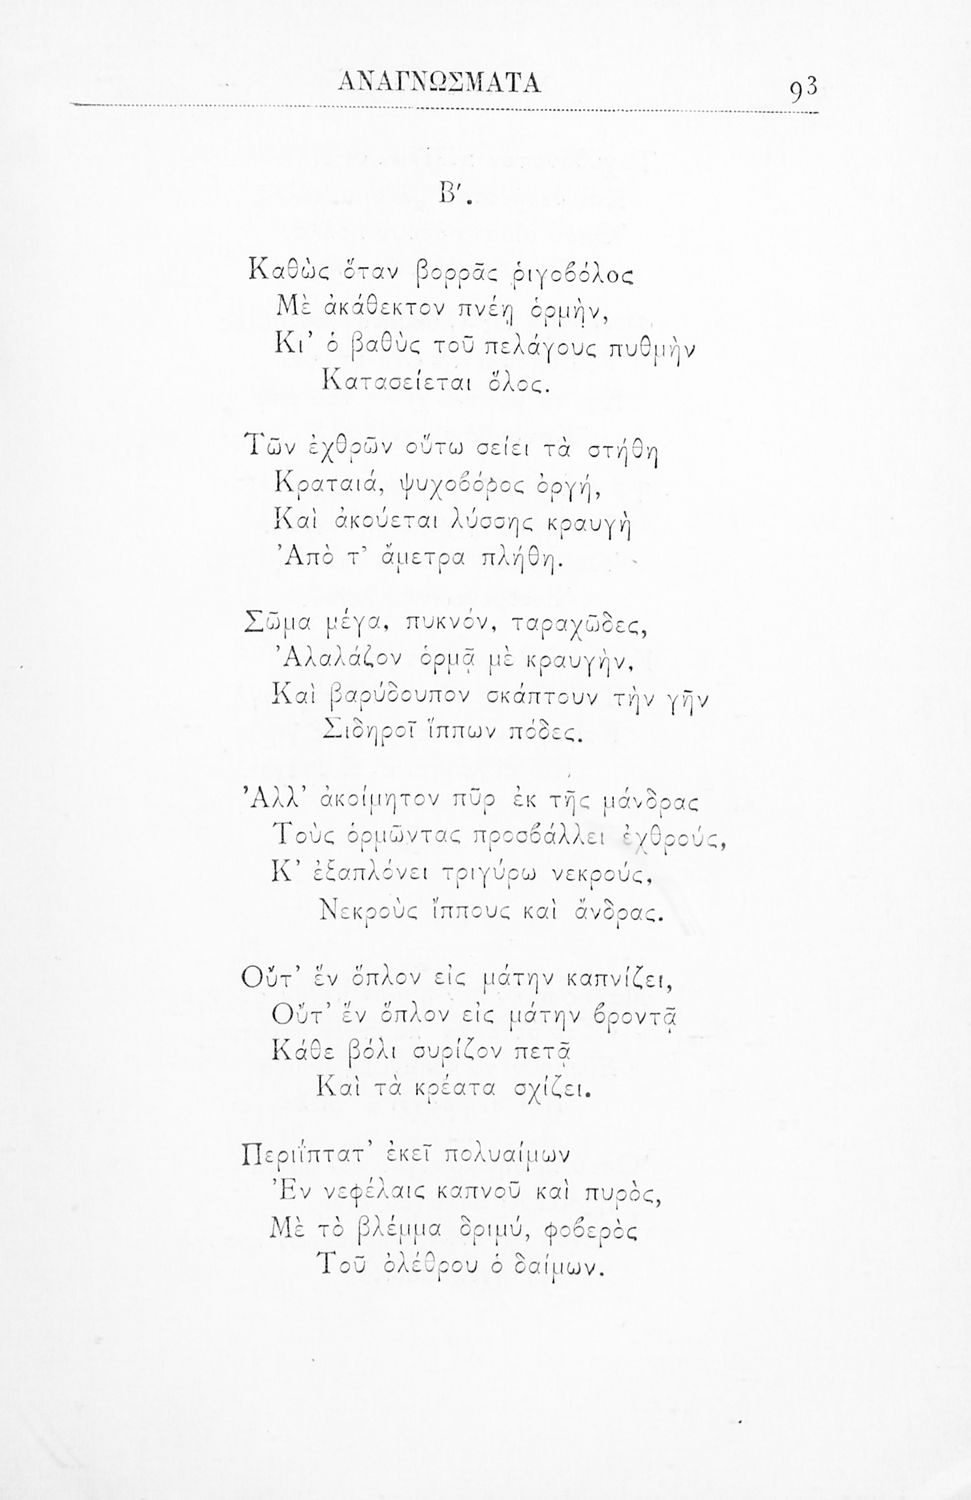 ΑΝΑΓΝΩΣΜΑΤΑ 93
Β′.
Καθὼς ὅταν βορρᾶς ῥιγοϐόλος
Μὲ ἀκάθεκτον πνέῃ ὁρμὴν,
Κι’ ὁ βαθὺς τοῦ πελάγους πυθμὴν
Κατασείεται ὅλος.
Τῶν ἐχθρῶν οὕτω σείει τὰ στήθη
Κραταιά, ψυχοϐόρος ὀργή,
Καὶ ἀκούεται λύσσης κραυγὴ
Ἀπὸ τ’ ἄμετρα πλήθη.
Σῶμα μέγα, πυκνόν, ταραχῶδες,
Ἀλαλάζον ὁρμᾷ μὲ κραυγὴν,
Καὶ βαρύδουπον σκάπτουν τὴν γῆν
Σιδηροῖ ἵππων πόδες.
Ἀλλ’ ἀκοίμητον πῦρ ἐκ τῆς μάνδρας
Τοὺς ὁρμῶντας προσϐάλλει ἐχθρούς,
Κ’ ἐξαπλόνει τριγύρω νεκρούς,
Νεκροὺς ἵππους καὶ ἄνδρας.
Οὔτ’ ἕν ὅπλον εἰς μάτην καπνίζει,
Οὔτ’ ἕν ὅπλον εἰς μάτην ϐροντᾷ
Κάθε βόλι συρίζον πετᾷ
Καὶ τὰ κρέατα σχίζει.
Περιΐπτατ’ ἐκεῖ πολυαίμων
Ἐν νεφέλαις καπνοῦ καὶ πυρὸς,
Μὲ τὸ βλέμμα δριμύ, φοϐερὸς
Τοῦ ὀλέθρου ὁ δαίμων.